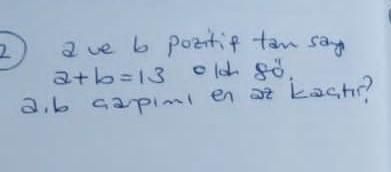 2 a ve b pozitif tam sayı
a+b=13 oldğ gö.
a.b çarpımı en az kaçtır?